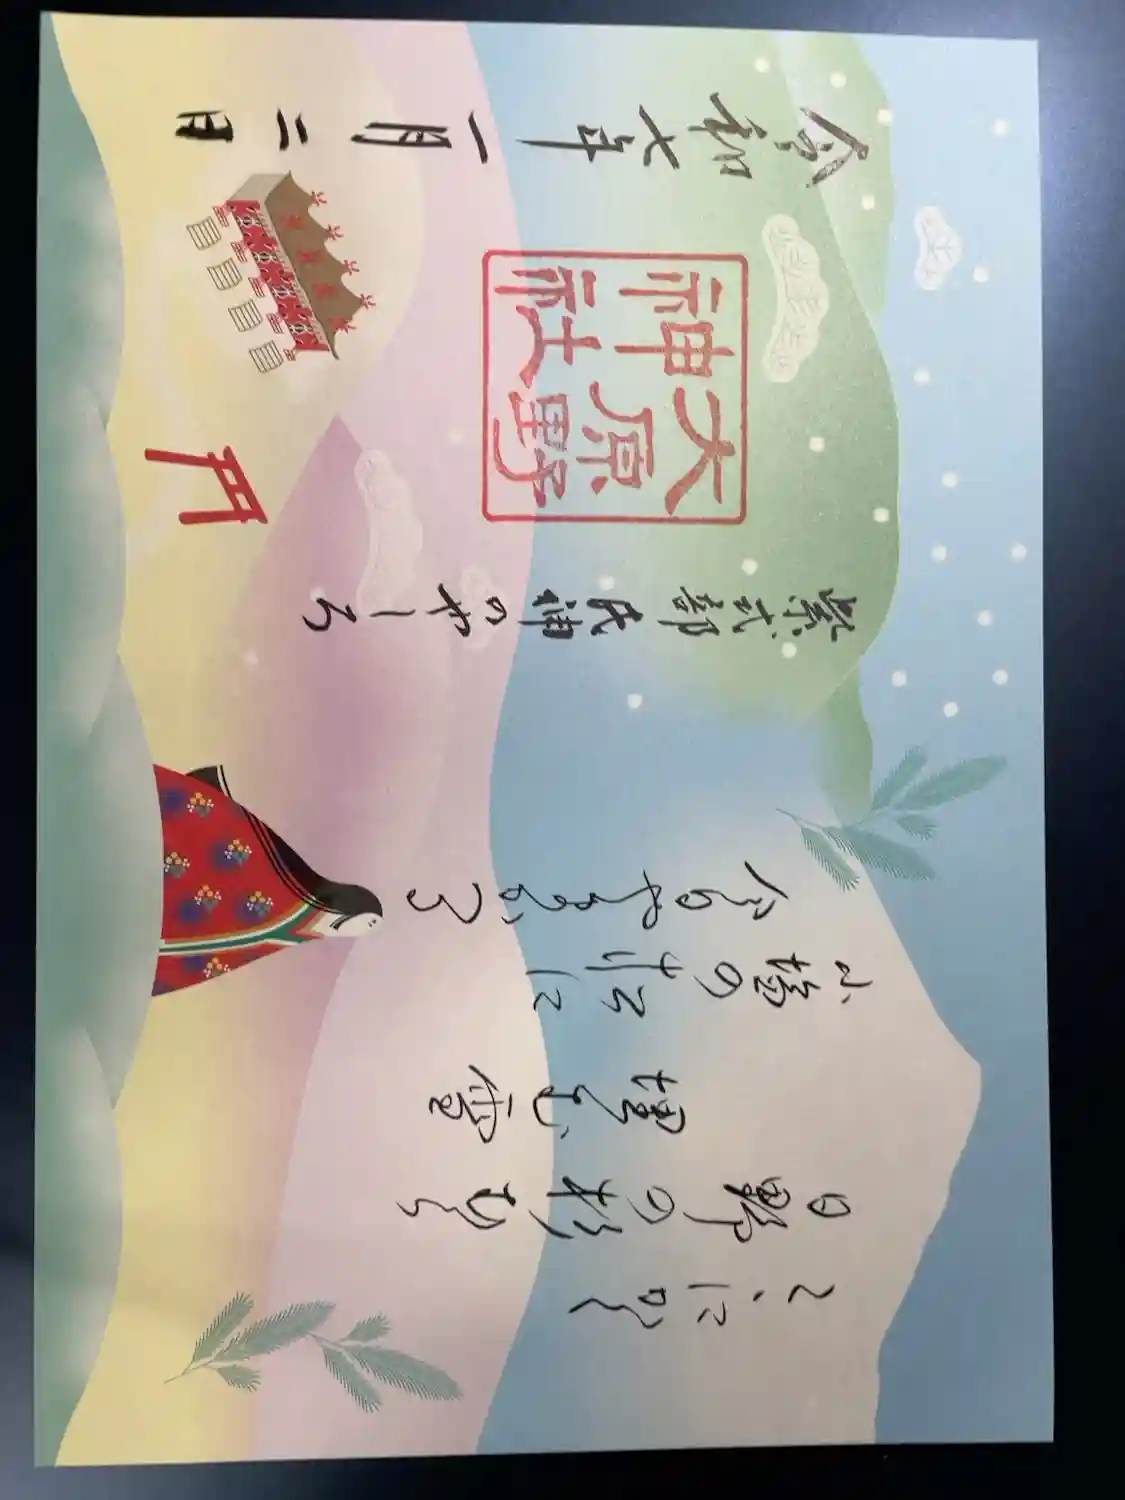 ここにかく
日野の杉むら
埋む雪
小塩の松に
今日やまかへる
紫式部氏神のやしろ
大原野
神社
令和七年一月二日